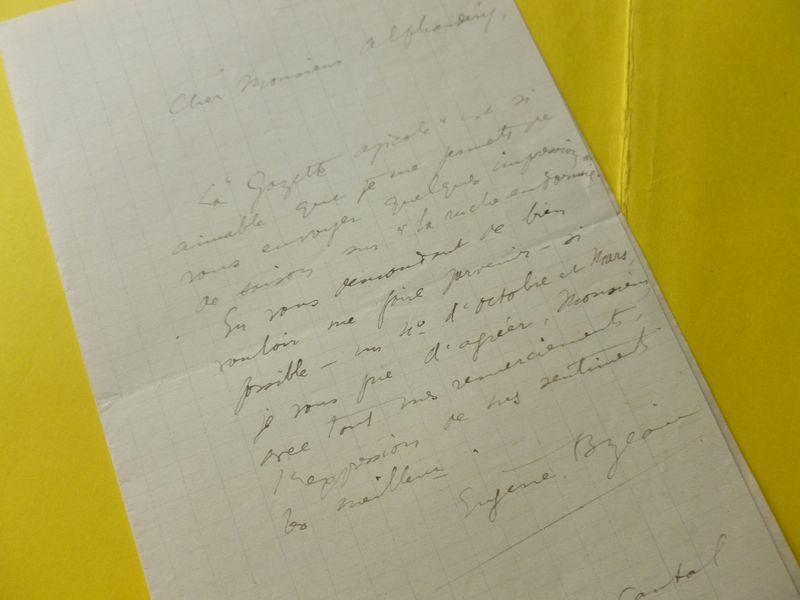 Cher Monsieur Alphandéry,
"La Gazette apicole" est si
aimable que je me permets de
vous envoyer quelques impressions
de saison sur "la ruche endormie".
En vous demandant de bien
vouloir me faire parvenir - si
possible - un N° d'octobre et Mars,
je vous prie d'agréer, Monsieur
avec tout mes remerciements,
l'expression de mes sentiments
les meilleurs.
Eugène Bizeau
Cantal